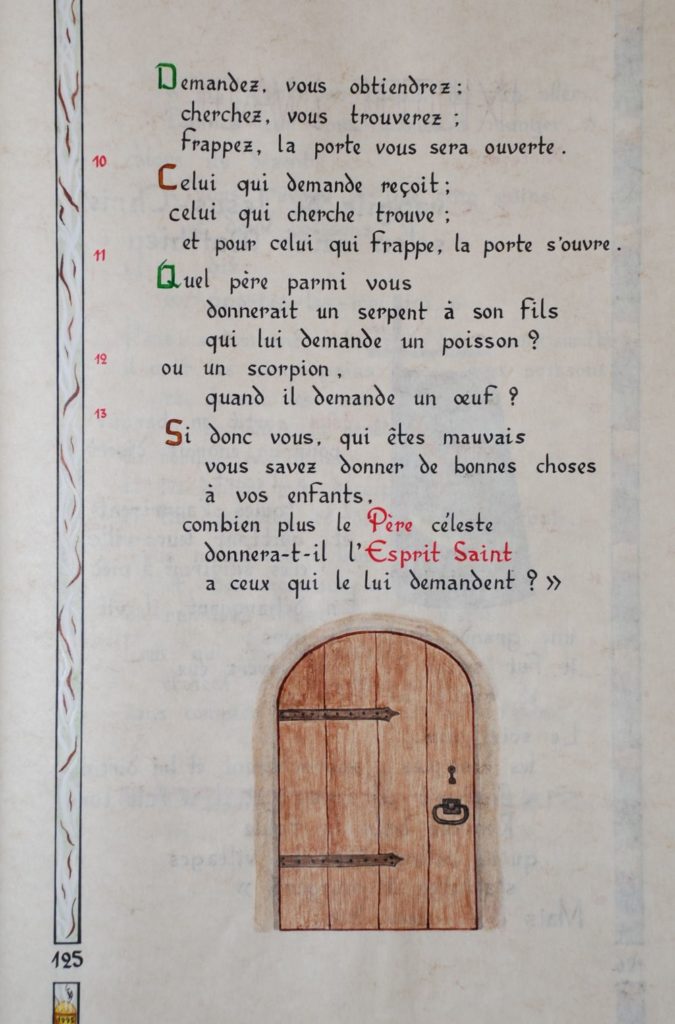 Demandez, vous obtiendrez ;
cherchez, vous trouverez ;
frappez, la porte vous sera ouverte.
10
Celui qui demande reçoit ;
celui qui cherche trouve ;
et pour celui qui frappe, la porte s'ouvre.
11
Quel père parmi vous
donnerait un serpent à son fils
qui lui demande un poisson ?
12
ou un scorpion,
quand il demande un œuf ?
13
Si donc vous, qui êtes mauvais
vous savez donner de bonnes choses
à vos enfants,
combien plus le Père céleste
donnera-t-il l'Esprit Saint
a ceux qui le lui demandent ? »
125
1995